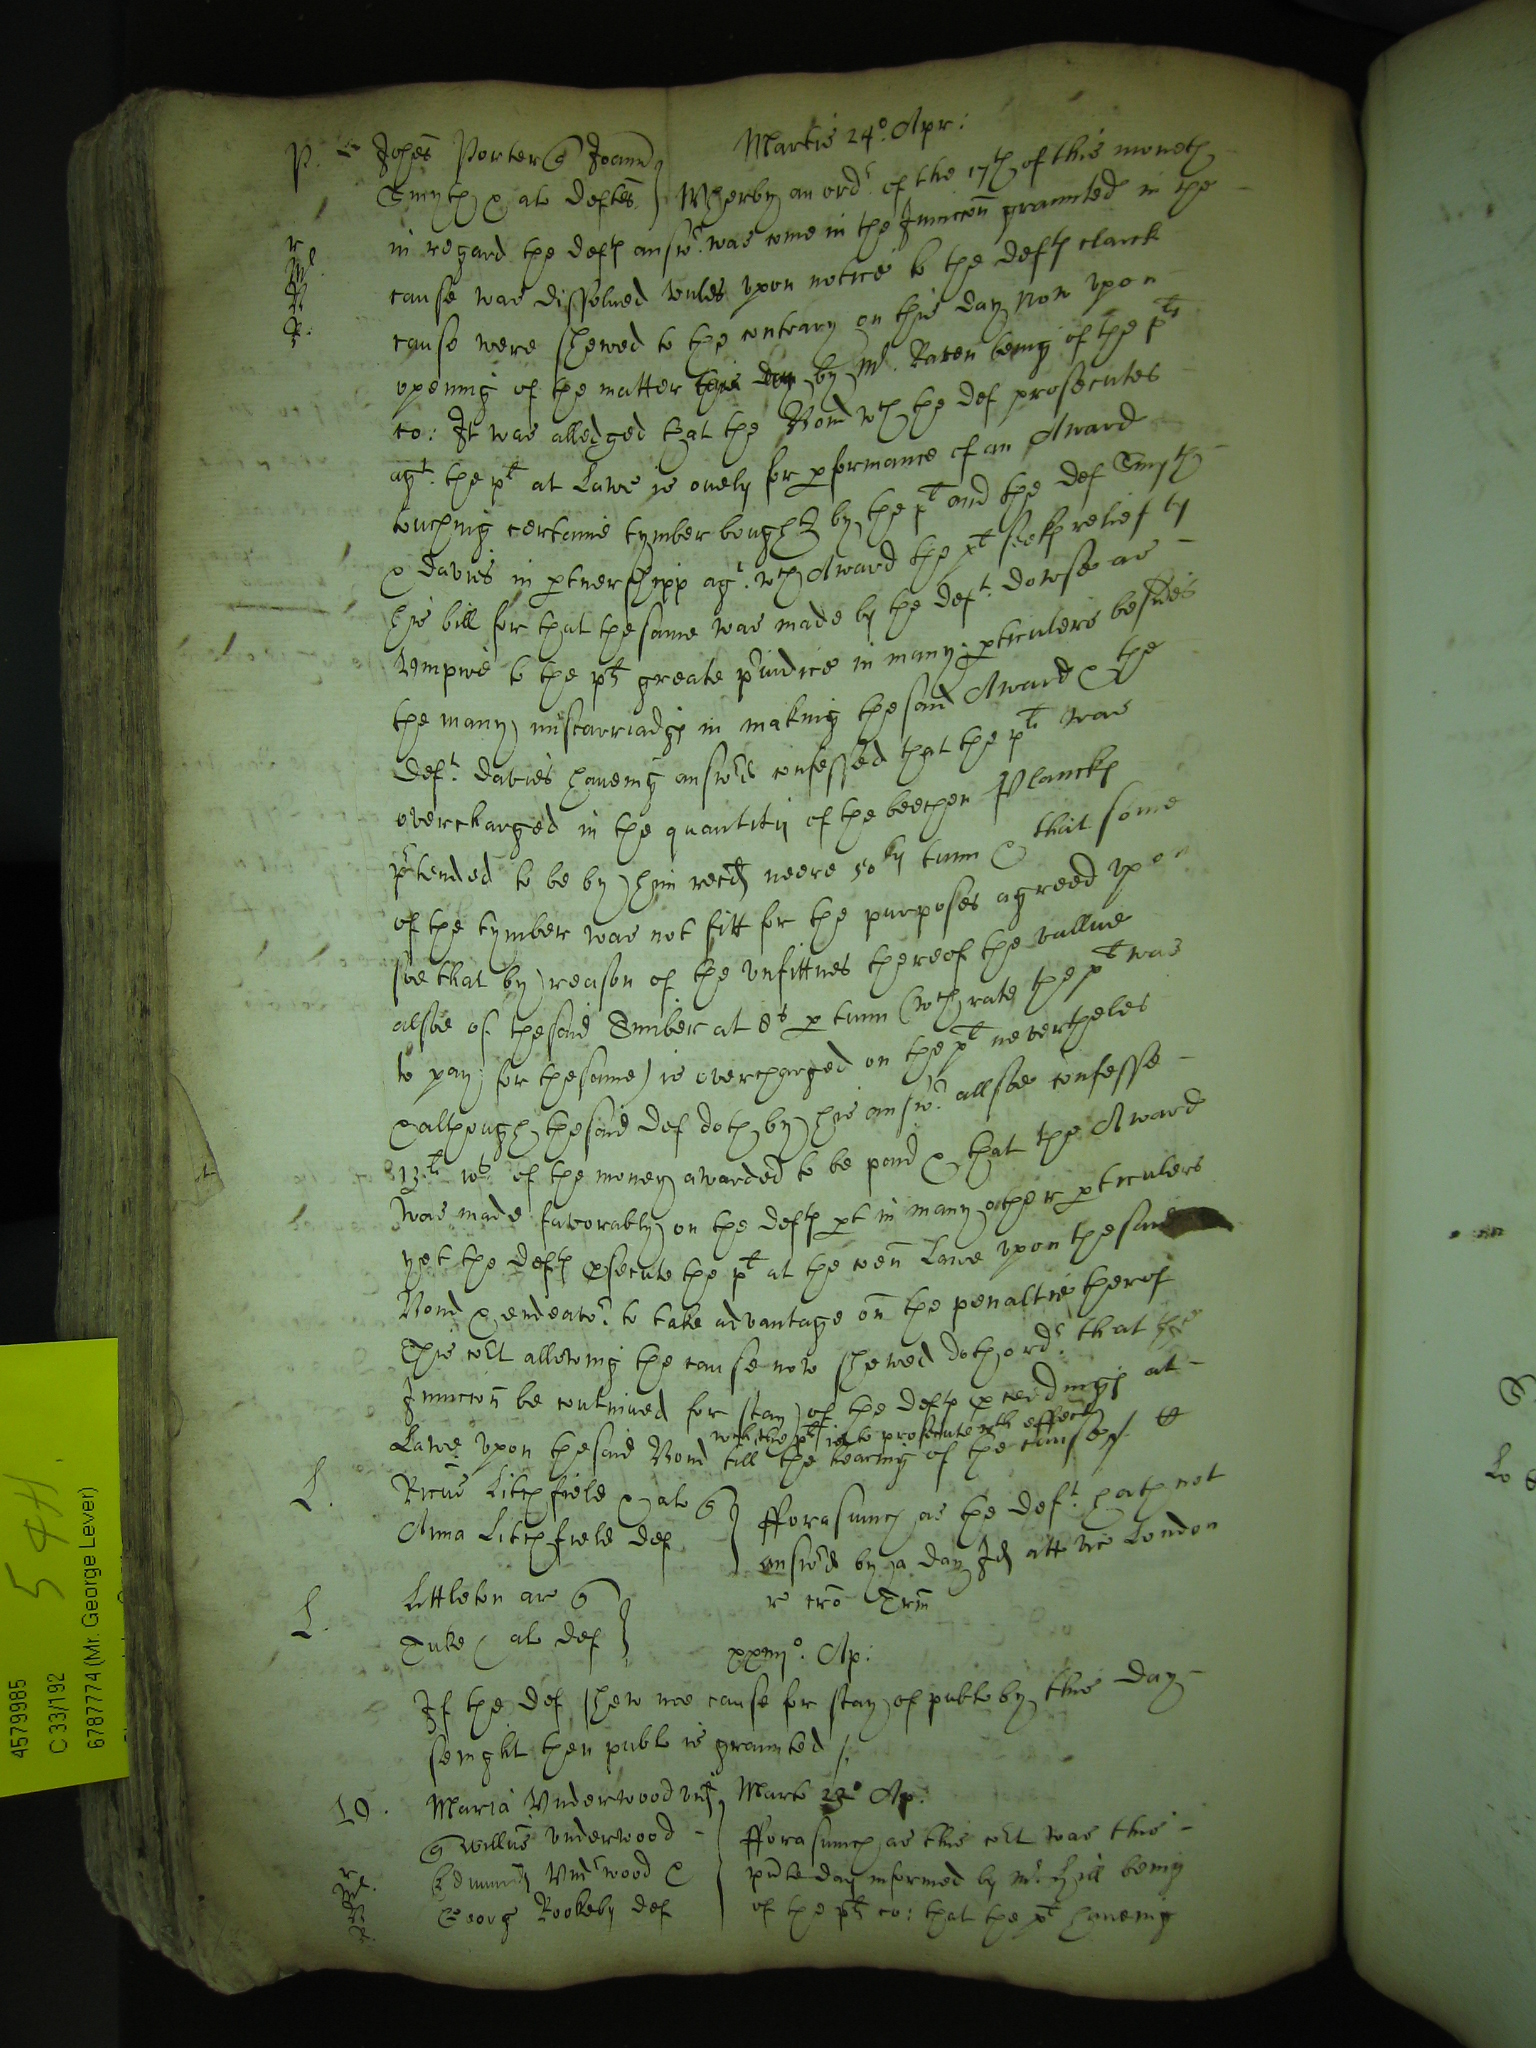 Martis 24.° Apr:
P. Johes Porter q Joann
Smyth & al deftes Wherby an ordr. of the 17th of this moneth
in regard the deftes answr. was come in the Iniuccon graunted in the
cause was dissolued vnles vpon notice to the deftes clarck
cause were shewed to the contrary on this day now vpon
opening of the matter this day by Mr. being of the plts
co: It was alledged that the Bond wch the def prosecutes
agt. the plt at Lawe is onely for pformance of an Award
touching certaine tymber bought by the plt and the def Smyth
& Davies in ptnershipp agt. wch Award the plt seekes relief by
his bill for that the same was made by the deft. Dowse as
Vmpire to the plts greate piudice in many pticulers besides
the many miscarriadges in making the said Award & the
deft. Davies haueing answred confessed that the plt was
overcharged in the quantity of the beechen Planckes
ptended to be by him recd neere 50ty tunn & that some
of the tymber was not fitt for the purposes agreed vpon
soe that by reason of the vnfittnes thereof the vallue
alsoe of the said at 8s p tunn (wch rate the plt was
to pay for the same) is overcharged on the plt nevertheles
& although the said def doth by his answr. allsoe confesse
13.li 10s of the money awarded to be paid & that the Award
was made favorably on the deftes pt in many other pticulers
yet the deftes psecute the plt at the coen Lawe vpon the said
Bond & endeavor. to take advantage on the penaltie therof
This cort allowing the cause now shewed doth ordr. that the
Iniuccon be continued for stay of the deftes pceedinges at
wch the plt is to prosecute with effect
Lawe vpon the said Bond till the hearing of the cause
L. Ricus Litchfield & al q
Anna Litchfield def fforasmuch as the deft. hath not
answred by a day Id att vrs London
L. Littleton ar q
Tuke & al def
xxiiij°. Ap:
If the def shew noe cause for stay of publc by this day
seinght then publc is graunted
10. Maria Vnderwood vid Marts 24° Ap:
q Willus Vnderwood fforasmuch as this cort was this
Edmund Vndrwood & pnte day informed by Mr. Hill being
Georg Rookeby def of the plts co: that the plt haueing
4579985
C 33/192
6787774 (Mr. George Lever)